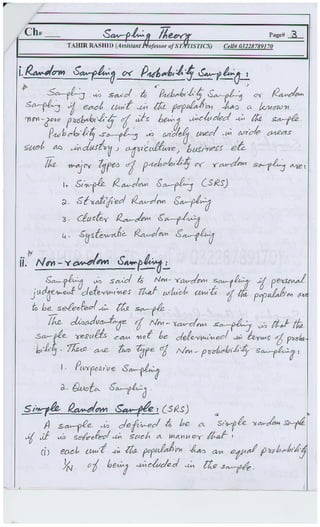 Ch# Sampling Theory Page# 3
TAHIR RASHID (Assistant Professor of STATISTICS) Cell# 03228789170
i. Random Sampling or Probability Sampling :
Sampling is said to "Probability Sampling or Random
Sampling if each unit in the population has a known
non-zero probability of its being included in the sample.
Probability sampling is widely used in wide areas
such as industry, agriculture, business etc
The major types of probability or random sampling are:
1. Simple Random Sampling (SRS)
2. Stratified Random Sampling
3. Cluster Random Sampling
4. Systematic Random Sampling
ii. Non-random Sampling :
Sampling is said to Non-random sampling if personal
judgement determines that which units of the population are
to be selected in the sample.
The disadvantage of Non-random sampling is that the
sample results can not be determined in terms of proba-
bility. There are two type of Non-probability sampling:
1. Purposive Sampling
2. Quota Sampling.
Simple Random Sample : (SRS)
A sample is defined to be a "Simple random sample"
if it is selected in such a manner that ;
(i) each unit in the population has an equal probability
1/N of being included in the sample.